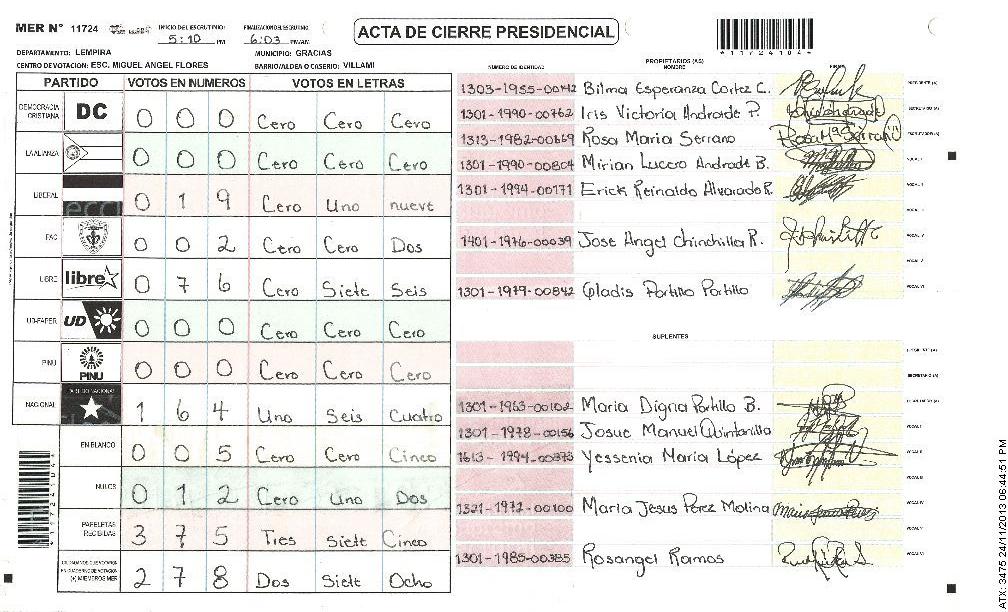 MER N° 11724
INICIO DEL ESCRUTINIO: 5:10 PM
FINALIZACION DEL ESCRUTINIO: 6:03 PM/AM
ACTA DE CIERRE PRESIDENCIAL
11724104
DEPARTAMENTO: LEMPIRA
MUNICIPIO: GRACIAS
CENTRO DE VOTACION: ESC. MIGUEL ANGEL FLORES
BARRIO/ALDEA O CASERIO: VILLAMI
PARTIDO VOTOS EN NUMEROS VOTOS EN LETRAS
DEMOCRACIA CRISTIANA DC 0 0 0 Cero Cero Cero
LA ALIANZA 0 0 0 Cero Cero Cero
LIBERAL 0 1 9 Cero Uno nueve
PAC 0 0 2 Cero Cero Dos
LIBRE libre 0 7 6 Cero Siete Seis
UD-FAPER UD 0 0 0 Cero Cero Cero
PINU PINU 0 0 0 Cero Cero Cero
NACIONAL 1 6 4 Uno Seis Cuatro
EN BLANCO 0 0 5 Cero Cero Cinco
NULOS 0 1 2 Cero Uno Dos
PAPELETAS RECIBIDAS 3 7 5 Ties Siete Cinco
(+) MIEMBROS MER 2 7 8 Dos Siete Ocho
NUMERO DE IDENTIDAD
PROPIETARIOS (AS)
NOMBRE
FIRMA
1303-1955-00142 Bilma Esperanza Cortez C. PRESIDENTE (A)
1301-1990-00762 Iris Victoria Androide P. SECRETARIO (A)
1313-1982-00669 Rosa Maria Serrano
1301-1990-00804 Mirian Lucero Andrade B. VOCAL I
1301-1994-00171 Erick Reinaldo Alvarado R. VOCAL II
1401-1976-00039 Jose Angel Chinchilla R. VOCAL IV
VOCAL V
1301-1979-00842 Gladis Portillo Portillo VOCAL VI
SUPLENTES
PRESIDENTE (A)
SECRETARIO (A)
1301-1963-00102 Maria Digna Portillo B.
1301-1978-00156 Josue Manuel Quintanilla VOCAL I
1613-1994-00373 Yessenia María López VOCAL II
1321-1972-00100 Maria Jesus Perez Molina VOCAL IV
VOCAL V
1301-1985-00385 Rosangel Ramos VOCAL VI
ATX: 3475 24/11/2013 06:44:51 PM